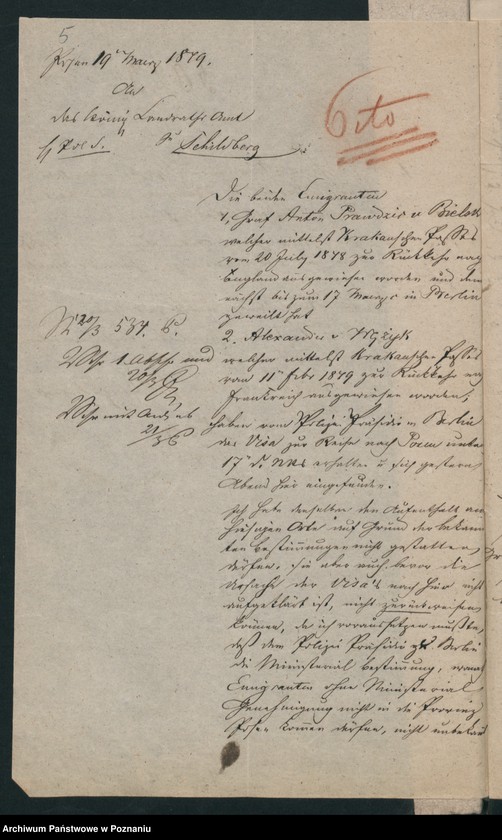 5
Posen 19 Maerz 1849.
An
das Königl Landraths Amt
zu Schildberg
Cito
Die beiden Emigranten
1, Graf Anton Prawdzic v Bielsk
welcher mittelst Krakauschen Passes
vom 20 July 1848 zur Rückkehr nach
England ausgewiesen worden und dem
nächst bis zum 17 Maerz in Berlin
geweilt hat
2. Alexander v
welcher mittelst Krakauschen Passes
vom 11 Febr 1849 zur Rückkehr nach
Frankreich ausgewiesen worden,
haben vom Polizei Präsidio in Berlin
das Visa zur Reise nach Posen unter
17 d. Mts erhalten u sich gestern
Abend hier eingefunden.
Ich habe denselben den Aufenthalt am
hiesigen Orte auf Grund der bekann
ten Bestimmungen nicht gestatten
dürfen, sie aber auch bevor die
Ursache der Visa's nach hier nicht
aufgeklärt ist, nicht zurückweisen
können, da ich voraussetzen musste,
daß dem Polizei Präsidio zu Berlin
die Ministerial Bestimmung, wonach
Emigranten ohne Ministerial
Genehmigung nicht in die Provinz
Posen kommen dürfen, nicht unbekan
534.
Archiwum Państwowe w Poznaniu